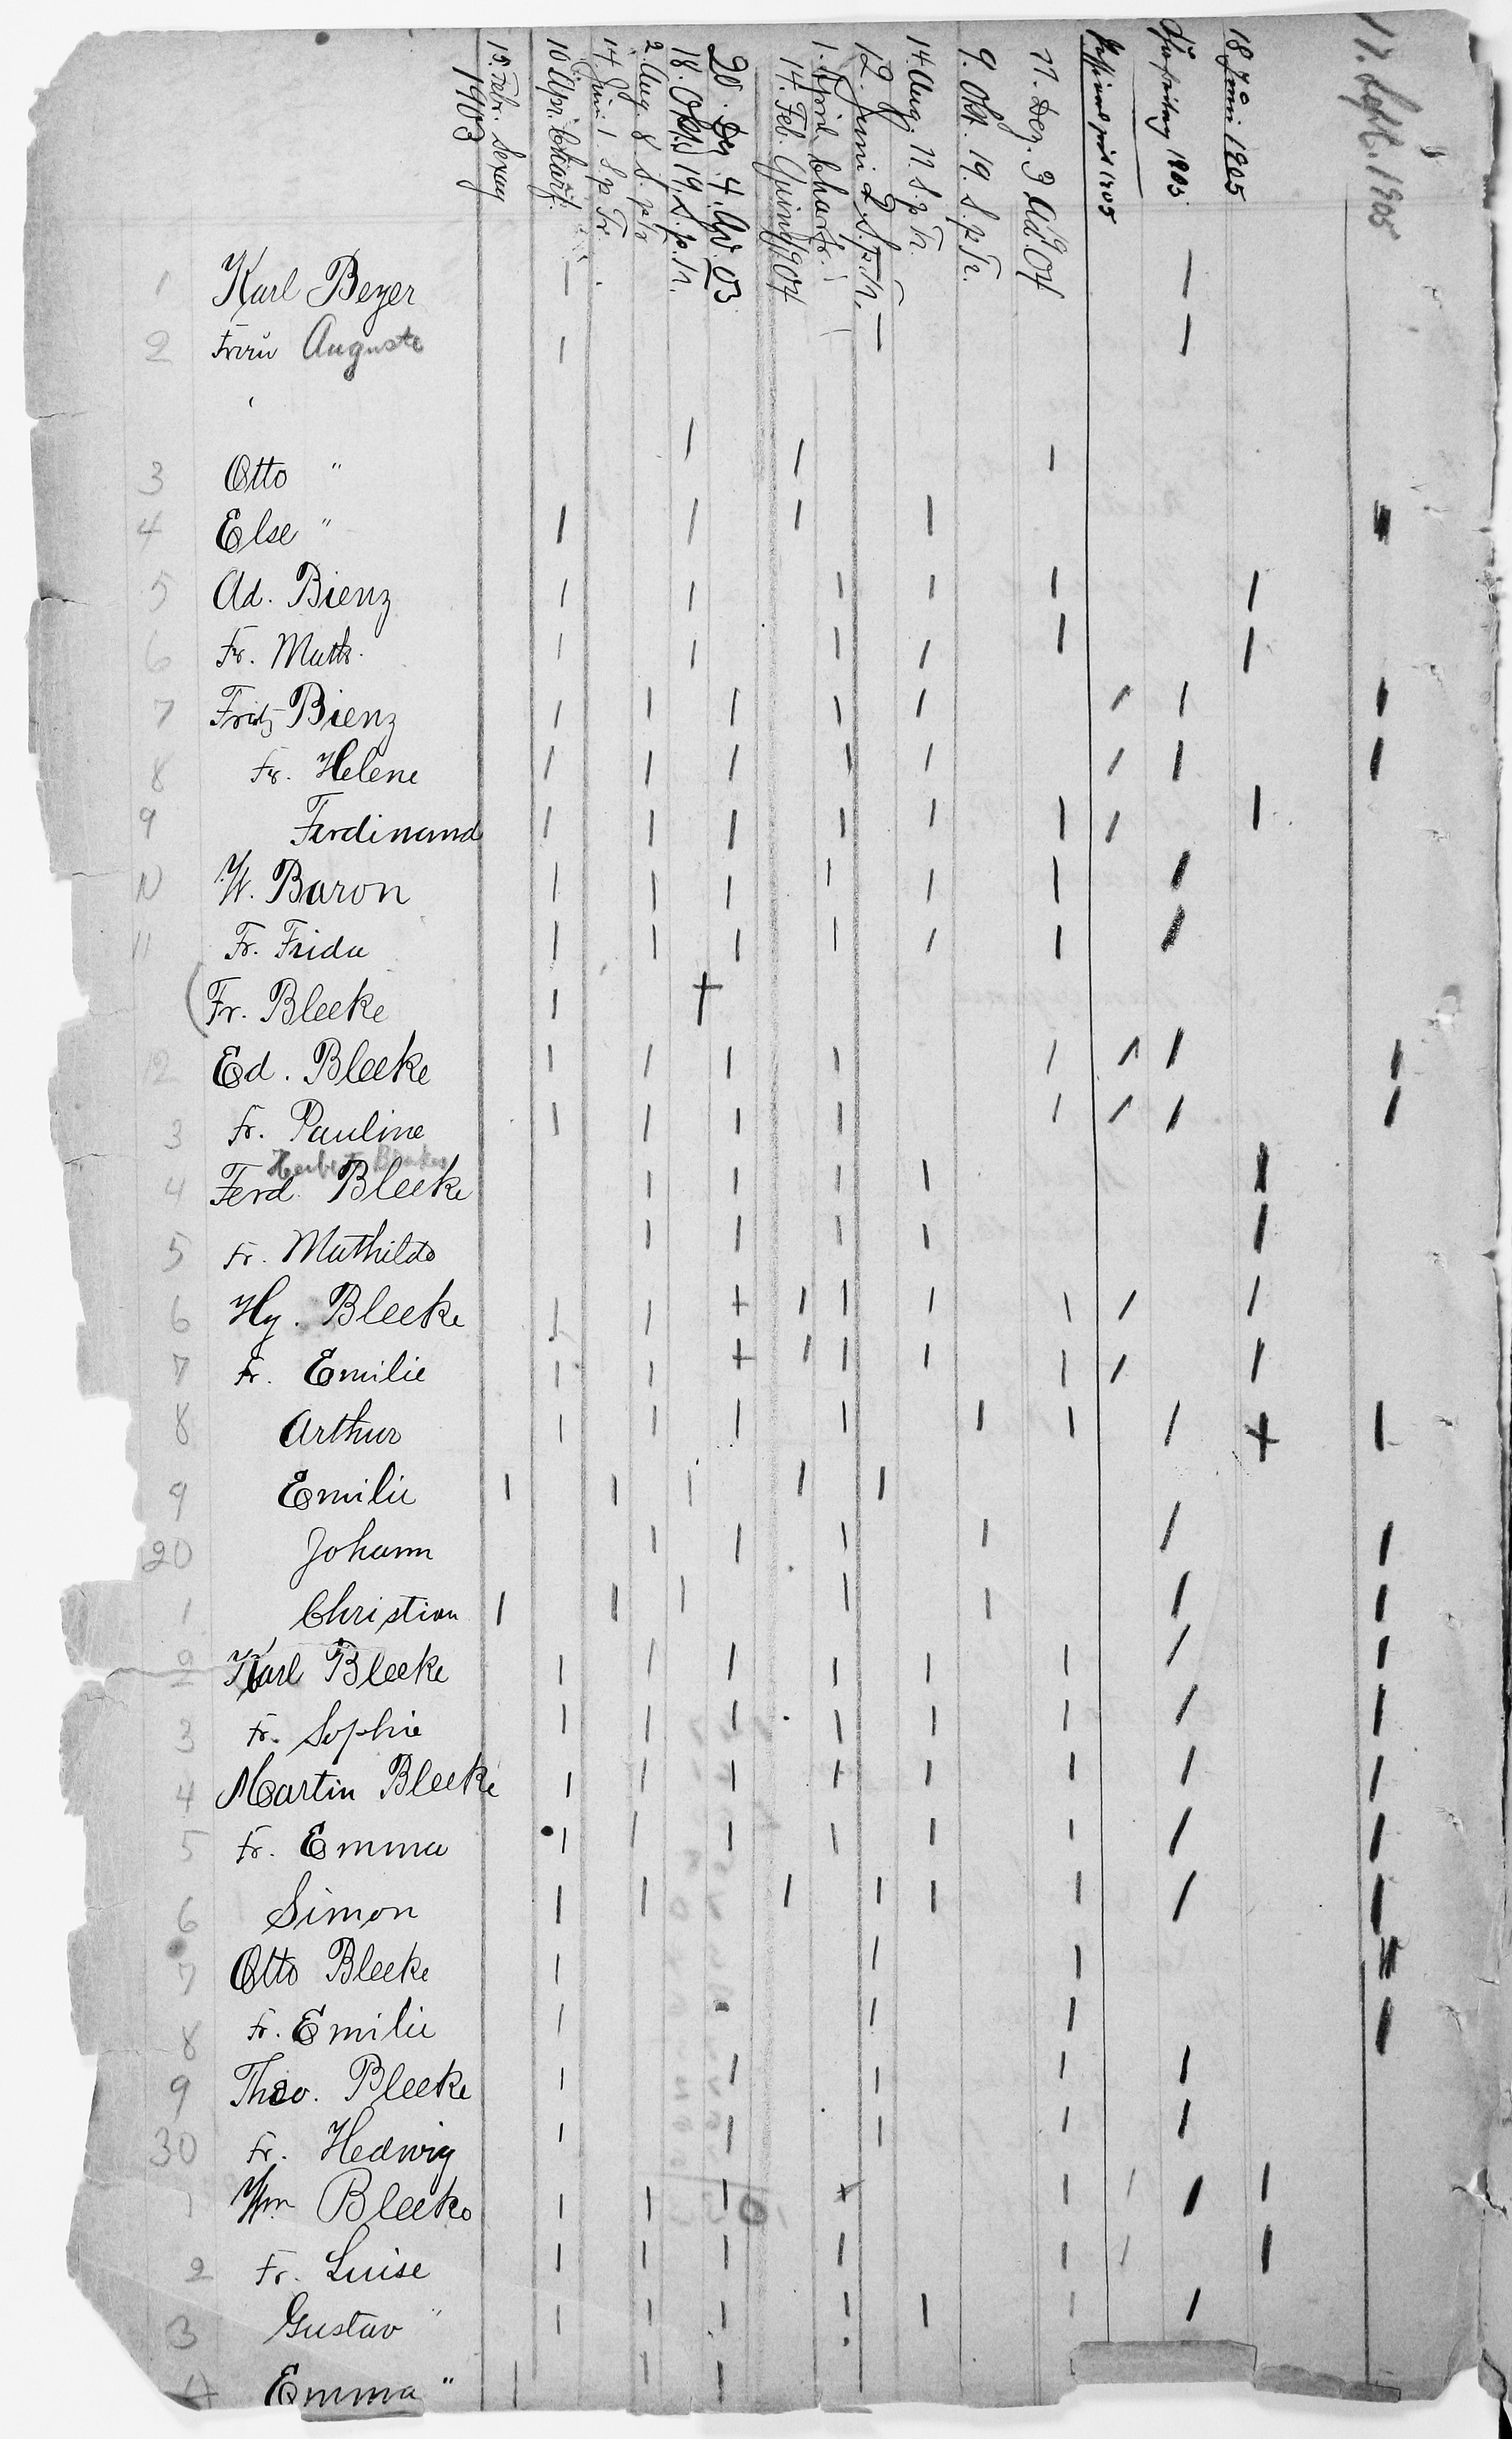 15. Febr. Sexag
1903
10 Apr. Charf.
14. Juni 1 S. p. Tr.
2 Aug. 8 S. p. Tr.
18. Okt. 19. S. p. Tr.
20. Dez. 4. Adv. 03
14. Feb. Quinq 1904
1. April Charfr.
12. Juni 2. S. p. Tr.
14. Aug. 11. S. p. Tr.
9. Okt. 19. S. p. Tr.
11. Dez. 3 Ad. 04
1905
1905
18 Juni 1905
17. Sept. 1905
1 Karl Beyer
2 Frau Auguste
3 Otto "
4 Else "
5 Ad. Bienz
6 Fr. Math.
7 Fritz Bienz
8 Fr. Helene
9 Ferdinand
10 W. Baron
11 Fr. Frida
(Fr. Bleeke
12 Ed. Bleeke
3 Fr. Pauline
4 Ferd. Bleeke
5 Fr. Mathilde
6 Hy. Bleeke
7 Fr. Emilie
8 Arthur
9 Emilie
20 Johann
1 Christian
2 Karl Bleeke
3 Fr. Sophie
4 Martin Bleeke
5 Fr. Emma
6 Simon
7 Otto Bleeke
8 Fr. Emilie
9 Theo. Bleeke
30 Fr. Hedwig
1 Wm Bleeke
2 Fr. Luise
3 Gustav "
4 Emma "